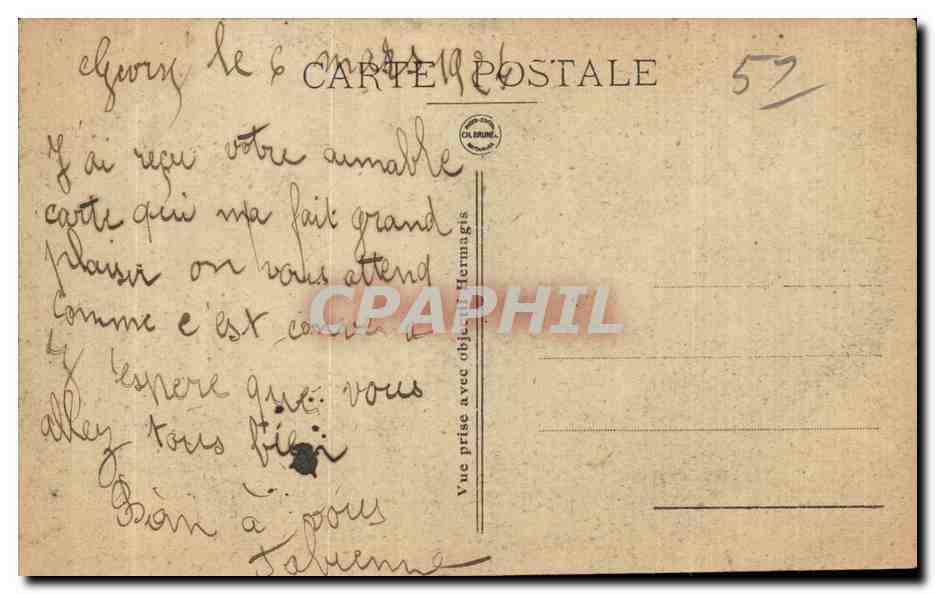 le 6 mars 192
CARTE POSTALE
57
CH. BRUNEL
J'ai reçu votre aimable
carte qui ma fait grand
plaisir on vous attend
comme c'est a
J'espere que vous
allez tous bien
Bien à vous
Fabienne
Vue prise avec objectif Hermagis
CPAPHIL